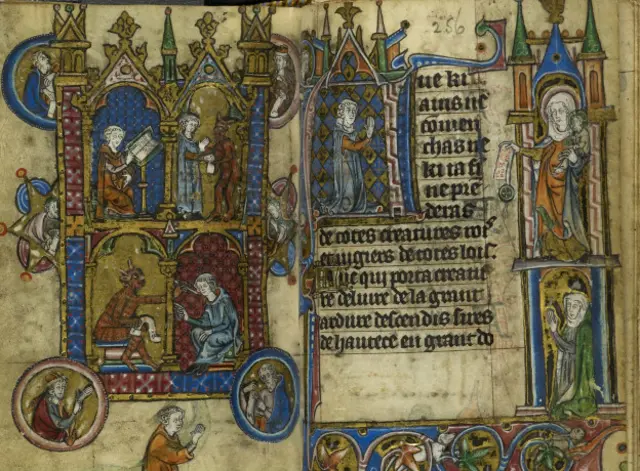 256
ue ki
ains ne
comen
chas ne
ki ia fi
ne pre
deras
de totes creatures roi
et iugieres de totes lois
Aue qui porta creatu
re deliure de la grant
ardure descendis sires
de hautece en grant do